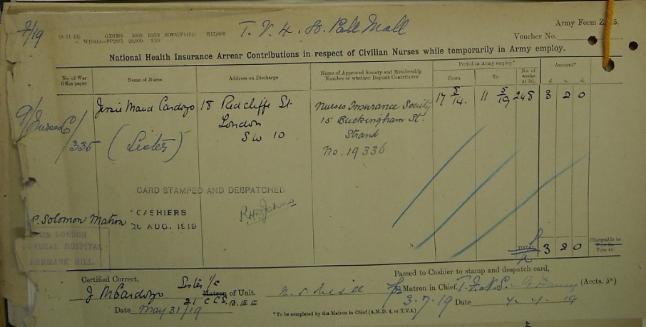 T.V.4. 80. Pall Mall
Army Form Z.
Voucher No.
National Health Insurance Arrear Contributions in respect of Civilian Nurses while temporarily in Army employ.
No. of War Office paper
Name of Nurse
Address on Discharge
Name of Approved Society and Membership Number or whether Deposit Contributor
Period in Army employ
From
To
No. of weeks
Amount
9/Nurses/
336
Jessie Maud Cardozo
(Sister)
18 Redcliffe St.
London
S W 10
Nurses Insurance Society
15 Buckingham St.
Strand
No. 19336
17 8/14.
11 5/19
248
3 2 0
CARD STAMPED AND DESPATCHED
CASHIERS
AUG. 1919
Solomon Matron
LONDON
GENERAL HOSPITAL
DENMARK HILL.
3 2 0
Chargeable to
Certified Correct,
J M Cardozo
Sister i/c
Matron of Unit.
Date May 31/19
Passed to Cashier to stamp and despatch card,
Matron in Chief
(Accts. 5*)
3.7.19
Date
*To be completed by the Matron in Chief (A.M.D. 4. or T.V.A.)